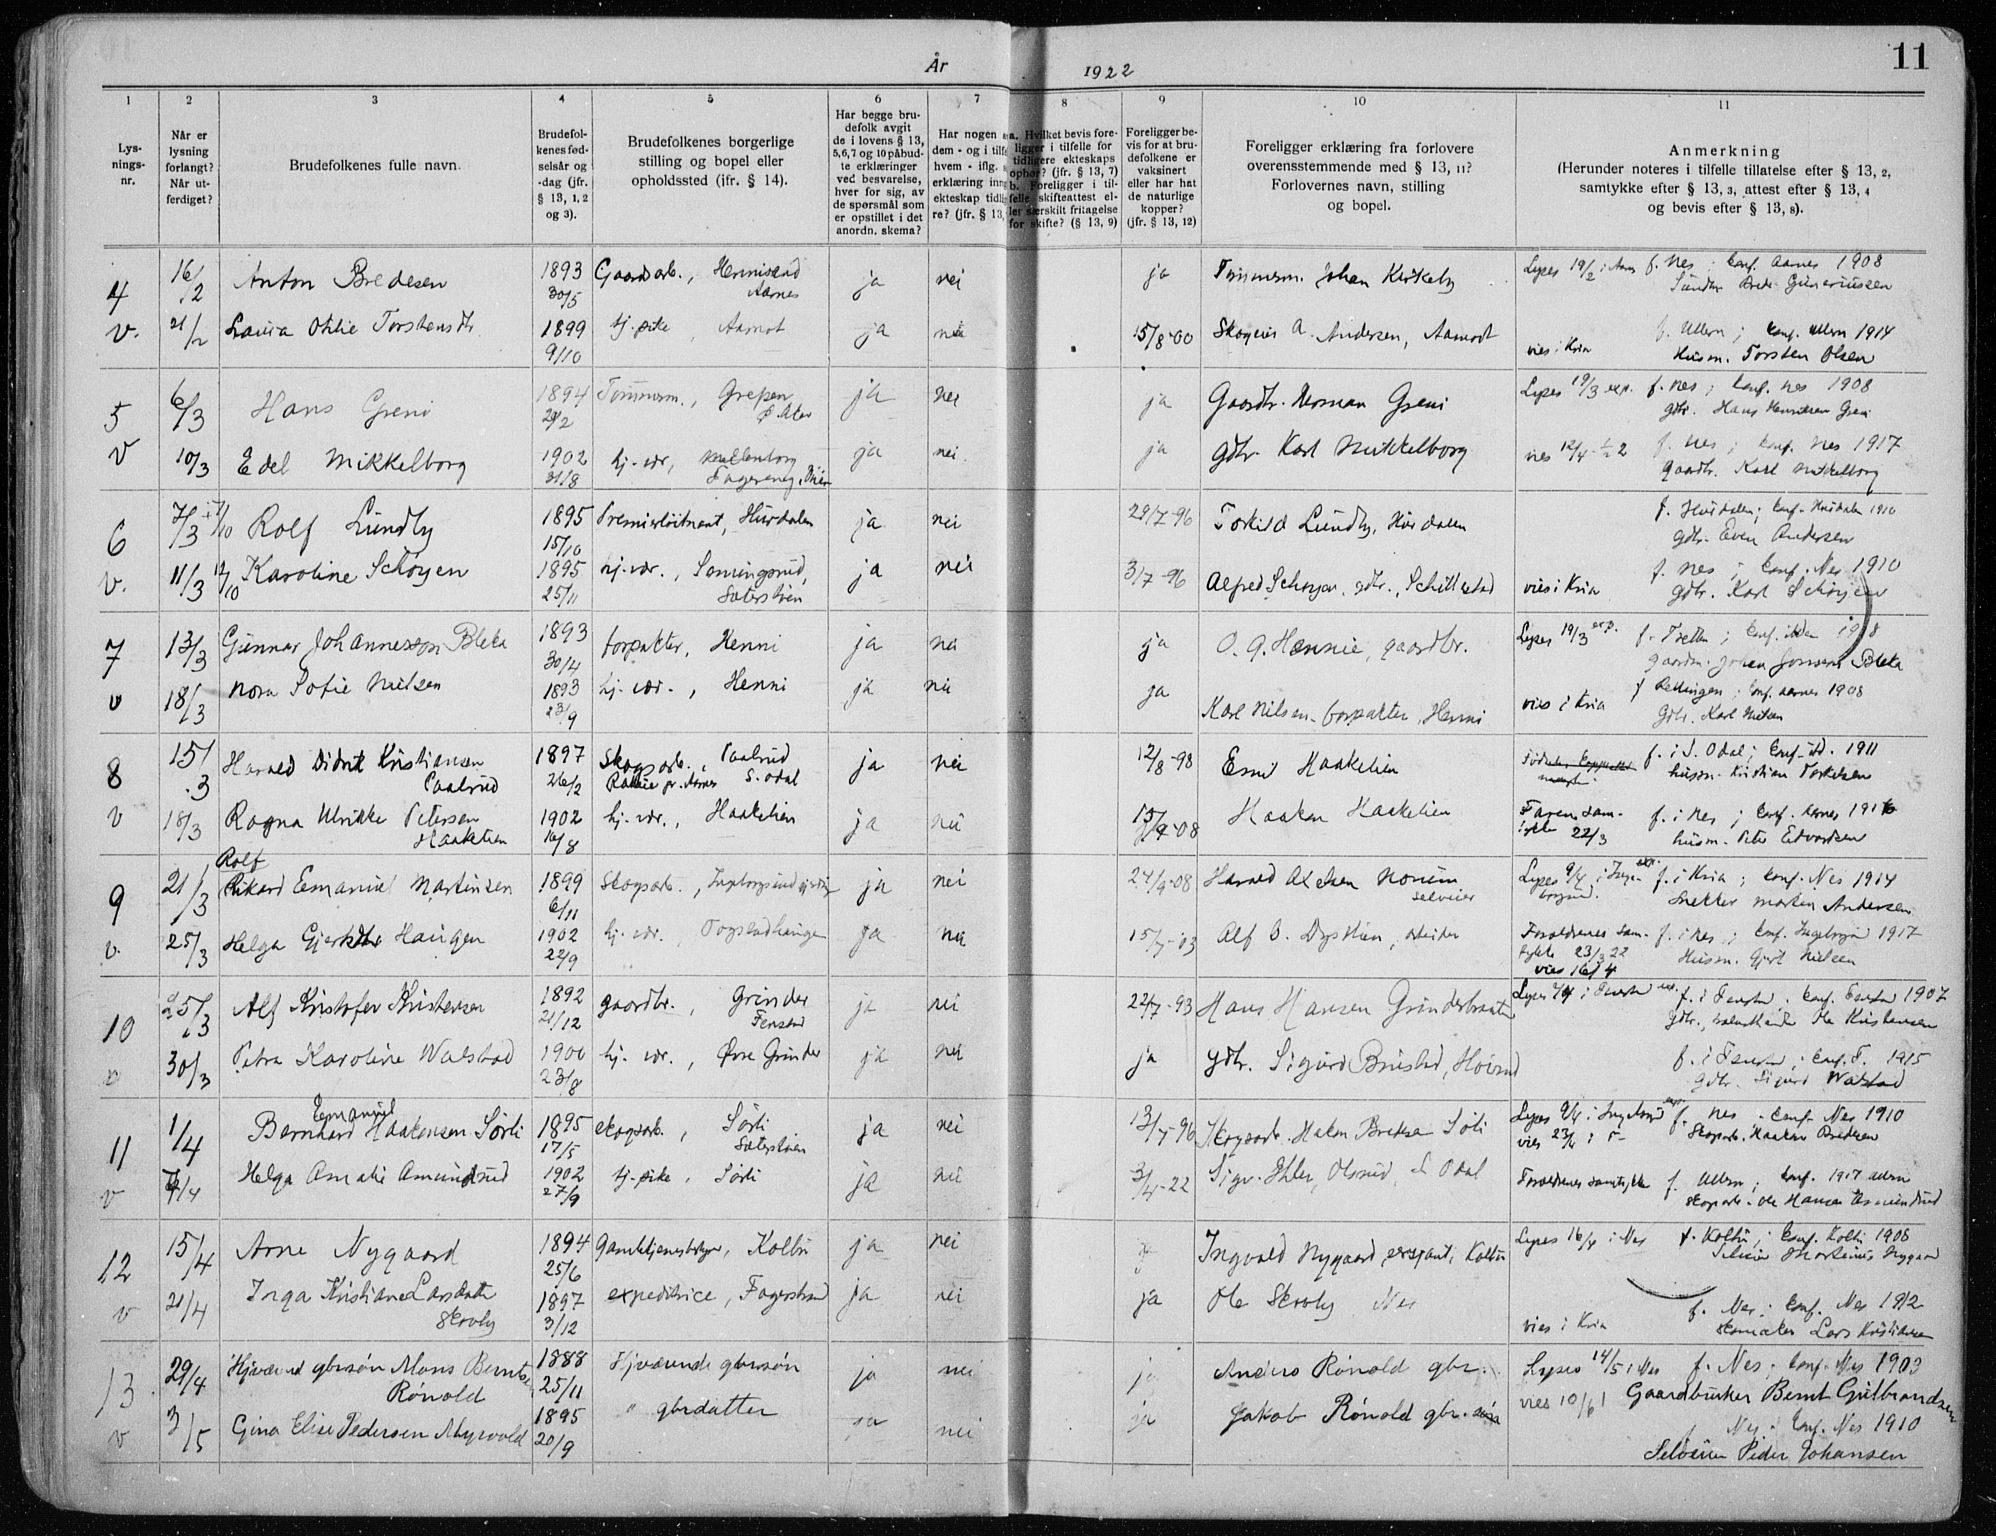 11
År 1922
1 2 3 4 5 6 7 8 9 10 11
Lysningsnr.
Når er lysning forlangt? Når utferdiget?
Brudefolkenes fulle navn.
Brudefolkenes fødselsår og -dag (jfr. § 13, 1, 2 og 3).
Brudefolkenes borgerlige stilling og bopel eller opholdssted (ifr. § 14).
Har begge brudefolk avgit de i lovens § 13, 5,6,7 og 10 påbudte erklæringer ved besvarelse, hver for sig, av de spørsmål som er opstillet i det anordn. skema?
Har nogen dem - og i tilfe hvem - iflg. erklæring inn ekteskap tidlig re? (jfr. § 13,
a. Hvilket bevis foreligger i tilfelle for tidligere ekteskaps ophør? (jfr. § 13, 7) b. Foreligger i tilfelle skifteattest eller særskilt fritagelse for skifte? (§ 13, 9)
Foreligger bevis for at brudefolkene er vaksinert eller har hat de naturlige kopper? (jfr. § 13, 12)
Foreligger erklæring fra forlovere overensstemmende med § 13, 11? Forlovernes navn, stilling og bopel.
Anmerkning (Herunder noteres i tilfelle tillatelse efter § 13, 2, samtykke efter § 13, 3, attest efter § 13, 4 og bevis efter § 13, 8).
4 16/2 Anton Bredesen 1893 30/5 Gaardsarb., Aarnes ja nei ja Tømmerm. Johan Kirkeby Lyses 19/2 i f. Nes ; Conf. Aarnes 1908
v. 21/2 Laura Othlie 1899 9/10 tj. pike, Aamot ja nei 15/8-00 A. Andersen, Aamodt vies i Kria f. Ullern ; Conf. Ullern 1914
Husm. Torsten Olsen
5 6/3 Hans Greni 1894 Tømmerm., Grepen ja nei ja Gaardbr. Herman Greni Lyses 19/3 exp. f. Nes ; Conf. Nes 1908
gdbr. Hans Greni
v 10/3 Edel Mikkelborg 1902 31/8 hj. vær, ja nei ja gdbr. Karl Mikkelborg vies 12/4 f. Nes ; Conf. Nes 1917
gaardbr. Karl Mikkelborg
6 7/3 Rolf Lundby 1895 15/10 Premierløitnant, Hurdalen ja nei 29/7-96 Torkild Lundby, Hurdalen f. Hurdalen ; Conf. Hurdalen 1910
gdbr. Even Andersen
v. 11/3 Karoline Schøyen 1895 25/11 hj. vær., Sæterstøen ja nei 3/7-96 Alfred Schøyen, gdbr., vies i Kria f. Nes ; Conf. Nes 1910
gdbr. Karl Schøyen
7 13/3 Gunnar Johannesson Bleka 1893 30/4 forpakter, Henni ja nei ja O. G. Hennie, gaardbr. Lyses 19/3 exp. f. Tretten ; Conf.
v 18/3 Nora Sofie Nielsen 1893 23/9 hj. vær., Henni ja nei ja Karl Nilsen forpakter, Henni vies i Kria Conf. Aarnes 1908
Gdbr. Karl Nilsen
8 15/3 Harald Didrik Kristiansen Paalsrud 1897 26/2 Skogsarb., S. Odal ja nei 12/8-98 Emil Haakelien f. i S. Odal ; Conf. 1911
husm. Kristian Torkelsen
v 18/3 Ragna Ulrikke Petersen Haakelien 1902 16/8 hj. vær., Haakelien ja nei Haakon Haakelien Farens samtykke 22/3 f. i Nes ; Conf. Aarnes
husm. Peter Edvardsen
9 21/3 Rolf Rikard Emanuel Martinsen 1899 6/11 Skogsarb., ja nei 24/9-08 Harald Axelsen Norum selveier Lyses 9/4 exp. f. i Kria ; Conf. Nes 1914
Snekker Martin Andersen
v. 25/3 Helga Haugen 1902 22/9 hj. vær. ja nei 15/7-03 Alf O. Dystlien, arbeider Forældrenes samtykke 23/3 22 vies 16/4 f. i Nes ; Conf. 1917
Husm. Gjert Nielsen
10 25/3 Alf Kristofer Kristensen 1892 21/12 gaardbr., Grinder Fenstad ja nei 22/7-93 Hans Hansen Grinderbraaten f. i Fenstad. Conf. Fenstad 1907
v 30/3 Petra Karoline Walstad 1900 23/8 hj. vær., Øvre Grinder ja nei ja gdbr. Sigurd f. i Fenstad ; Conf. F. 1915
Gdbr. Sigurd Walstad
11 1/4 Bernhard Emanuel Haakensen Sørli 1895 17/5 skogsarb., Sørli Sæterstøen ja nei 13/7-96 Skogsarb. Haken Sørli Lyses 9/4 vies 23/4 f. Nes - Conf. Nes 1910
Skogarb. Haakon Bredesen
v Helga Amalie Amundrud 1902 27/9 tj. pike, Sørli ja nei 3/4-22 S. Odal Forældrenes samtykke f. Ullern ; Conf. 1917 Ullern
Ole Hansen Amundrud
12 15/4 Arne Nygaard 1894 25/6 Kolbu ja nei Ingvald Nygaard, sersjant, Kolbu Lyses 16/4 i Nes f. Kolbu ; Conf. Kolbu 1908
Martinus Nygaard
v 21/4 Inga Kristiane Larsdatter Skovby 1897 3/12 expeditrice, Fagerstrand ja nei ja Ole Skovby Nes vies i Kria f. Nes ; Conf. Nes 1912
Skomaker Lars Kristiansen
13 29/4 Hjværend gbrsøn Mons Berntsen Rønold 1888 25/11 Hjværende gbrsøn ja nei ja Anders Rønold gbr. Lyses 14/5 i Nes f. Nes. Conf. Nes 1903
vies 10/6 Gaardbruker Bernt Gulbrandsen
v 3/5 Gina Elise Pedersen Myrvold 1895 20/9 " gbrdatter ja nei ja Jakob Rønold gbr. f. Nes. Conf. Nes 1910
Selveier Peder Johansen